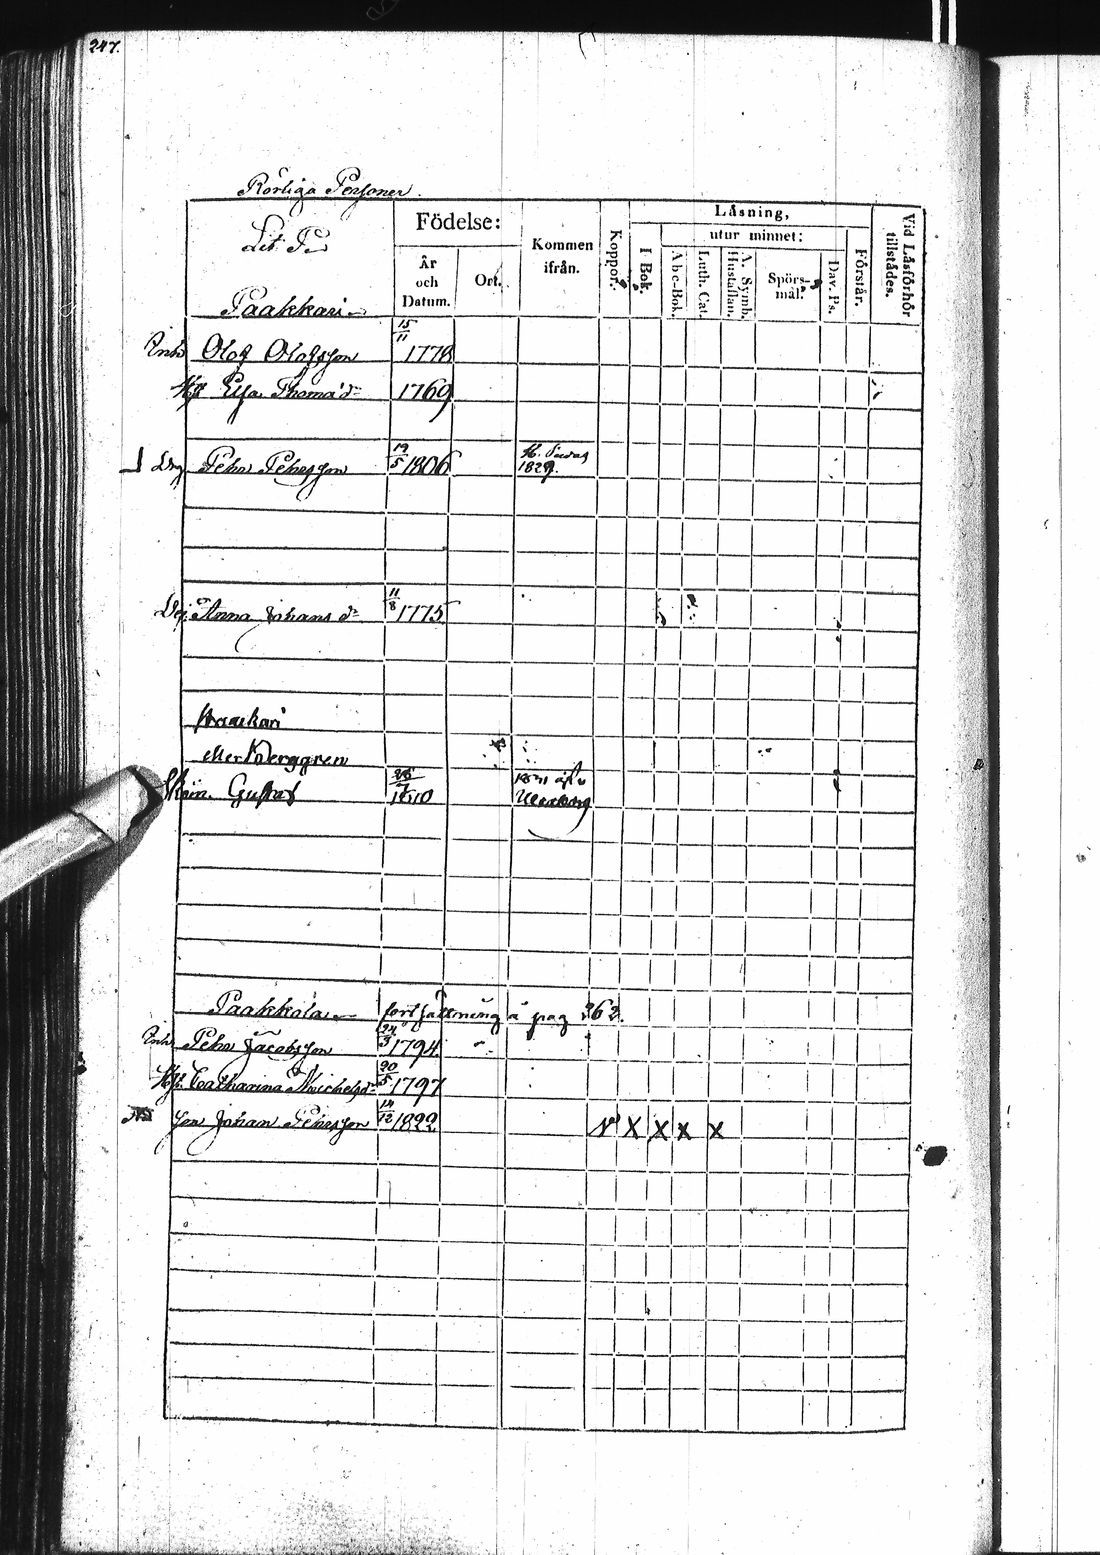 247.
Rörliga Personer.
Lit. P.
Födelse:
År och Datum.
Ort.
Kommen ifrån.
Koppor.
Låsning,
I Bok.
utur minnet:
Abc-Bok.
Luth. Cat.
A. Symb. Hustaflan.
Spörs-mål.
Dav. Ps.
Förstår.
Vid Låsförhör tillstådes.
Paakkari
Inh Olof Olofsson 15/11 1778
Hu Elsa Thomæd 1769
Drg Pehr Pehrsson 19/5 1806 1829.
Anna Johans d 11/8 1775
Paackari
eller Berggren
Gustaf 1810 Uleåborg
Paakkola fortsättning å pag 362.
Inh Pehr Jacobsson 24/3 1794
Hu Catharina Michelsd 20/5 1797
son Johan Pehrsson 14/12 1822 v x x x x